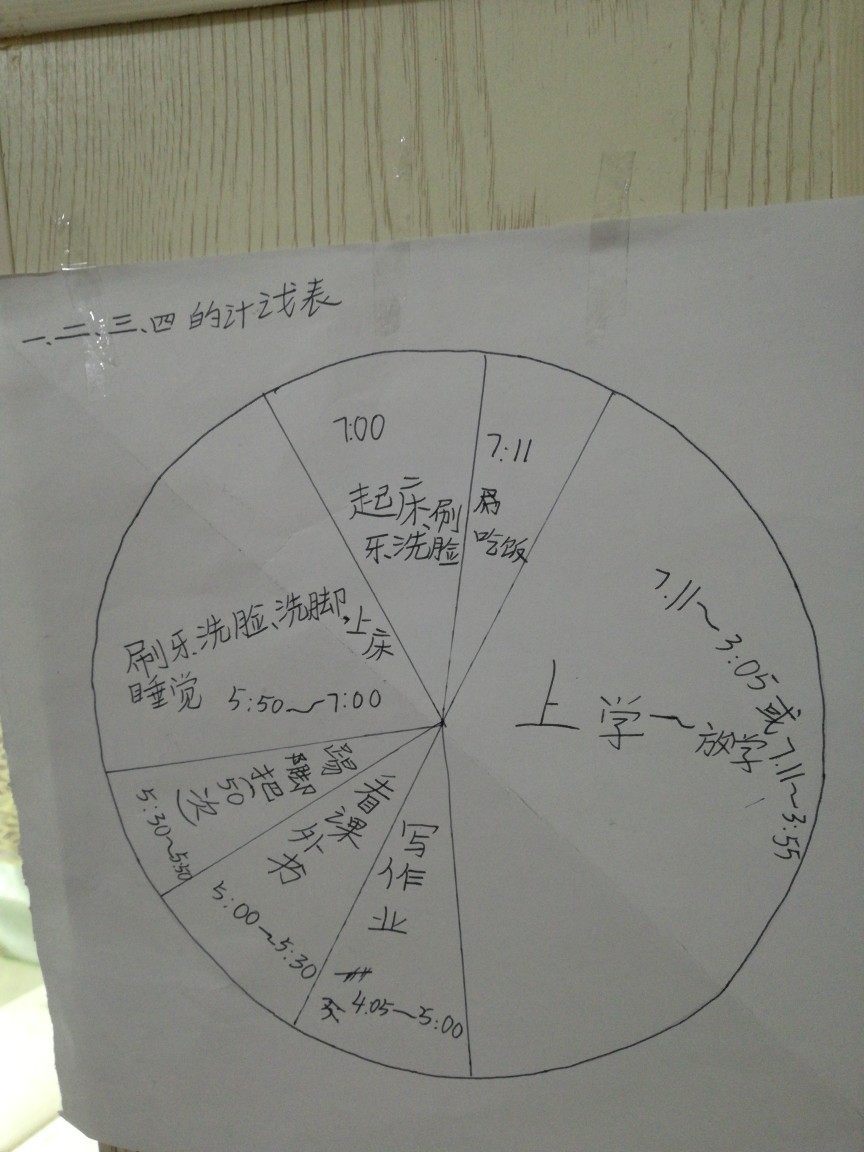 一、二、三、四的计戏表
7:00
起床、刷
牙、洗脸
7:11
吃饭
7.11～3:05或7.11～3:55
上学～放学
写作业
4.05～5:00
看课外书
5:00～5:30
踢脚把(50次
5:30～5:50
刷牙、洗脸、洗脚,上床
睡觉 5:50～7:00